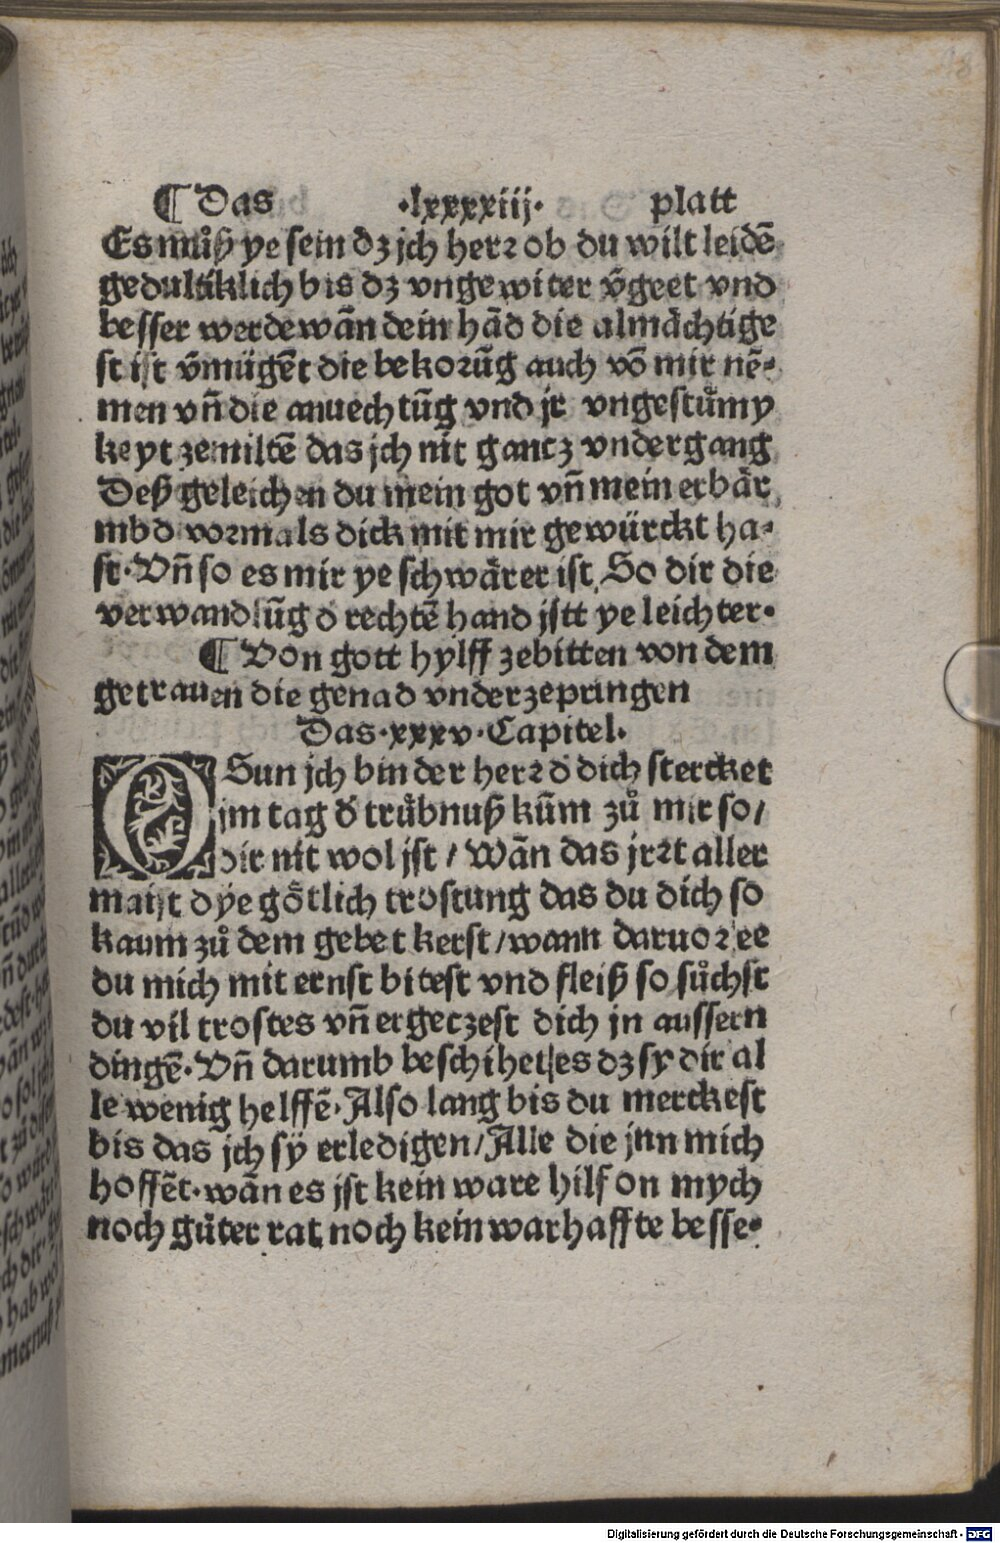 ¶ Das ·lxxxxiij· platt
Es můß ye sein dz jch herꝛ ob du wilt leidē
gedultiklich bis dz vngewiter v̄geet vnd
besser werde wān dein hād die almächtige
st ist v̄mügēt die bekoꝛūg auch vō mir nē⸗
men vn̄ die anuechtūg vnd jr vngestůmy
keyt zemiltē das jch nit gantz vndergang
Deß geleichen du mein got vn̄ mein erbār
mbd voꝛmals dick mit mir gewürckt ha⸗
st· Vn̄ so es mir ye schwärer ist So dir die
verwandlūg d rechtē hand jstt ye leichter·
¶ Von gott hylff zebitten von dem
getrauen die genad vnderzepringen
Das·xxxv·Capitel·
O Sun jch bin der herꝛ d̄ dich stercket
jm tag d̄ trůbnuß kūm zů mir so/
dir nit wol jst / Wān das jrꝛt aller
maist dye gōtlich trostung das du dich so
kaum zů dem gebet kerst/wann daruoꝛ ee
du mich mit ernst bitest vnd fleiß so sůchst
du vil trostes vn̄ ergeczest dich jn aussern
dingē· Vn̄ darumb beschihet es dz sy dir al
le wenig helffē· Also lang bis du merckest
bis das jch sy erledigen/Alle die jnn mich
hoffēt· wān es jst kein ware hilf on mych
noch gůter rat noch kein warhaffte besse⸗
Digitalisierung gefördert durch die Deutsche Forschungsgemeinschaft - DFG